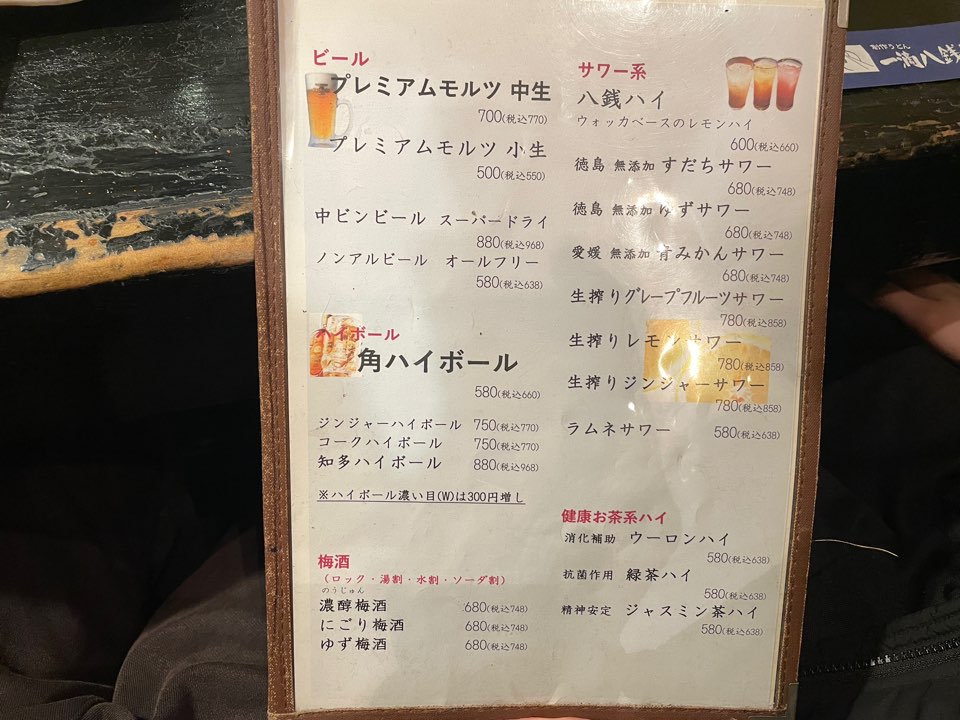 ビール
プレミアムモルツ 中生
700(税込770)
プレミアムモルツ 小生
500(税込550)
中ビンビール スーパードライ
880(税込968)
ノンアルビール オールフリー
580(税込638)
ハイボール
角ハイボール
580(税込660)
ジンジャーハイボール 750(税込770)
コークハイボール 750(税込770)
知多ハイボール 880(税込968)
※ハイボール濃い目(W)は300円増し
梅酒
(ロック・湯割・水割・ソーダ割)
のうじゅん
濃醇梅酒 680(税込748)
にごり梅酒 680(税込748)
ゆず梅酒 680(税込748)
サワー系
八銭ハイ
ウォッカベースのレモンハイ
600(税込660)
徳島 無添加 すだちサワー
680(税込748)
徳島 無添加 ゆずサワー
680(税込748)
愛媛 無添加 青みかんサワー
680(税込748)
生搾りグレープフルーツサワー
780(税込858)
生搾りレモンサワー
780(税込858)
生搾りジンジャーサワー
780(税込858)
ラムネサワー 580(税込638)
健康お茶系ハイ
消化補助 ウーロンハイ
580(税込638)
抗菌作用 緑茶ハイ
580(税込638)
精神安定 ジャスミン茶ハイ
580(税込638)